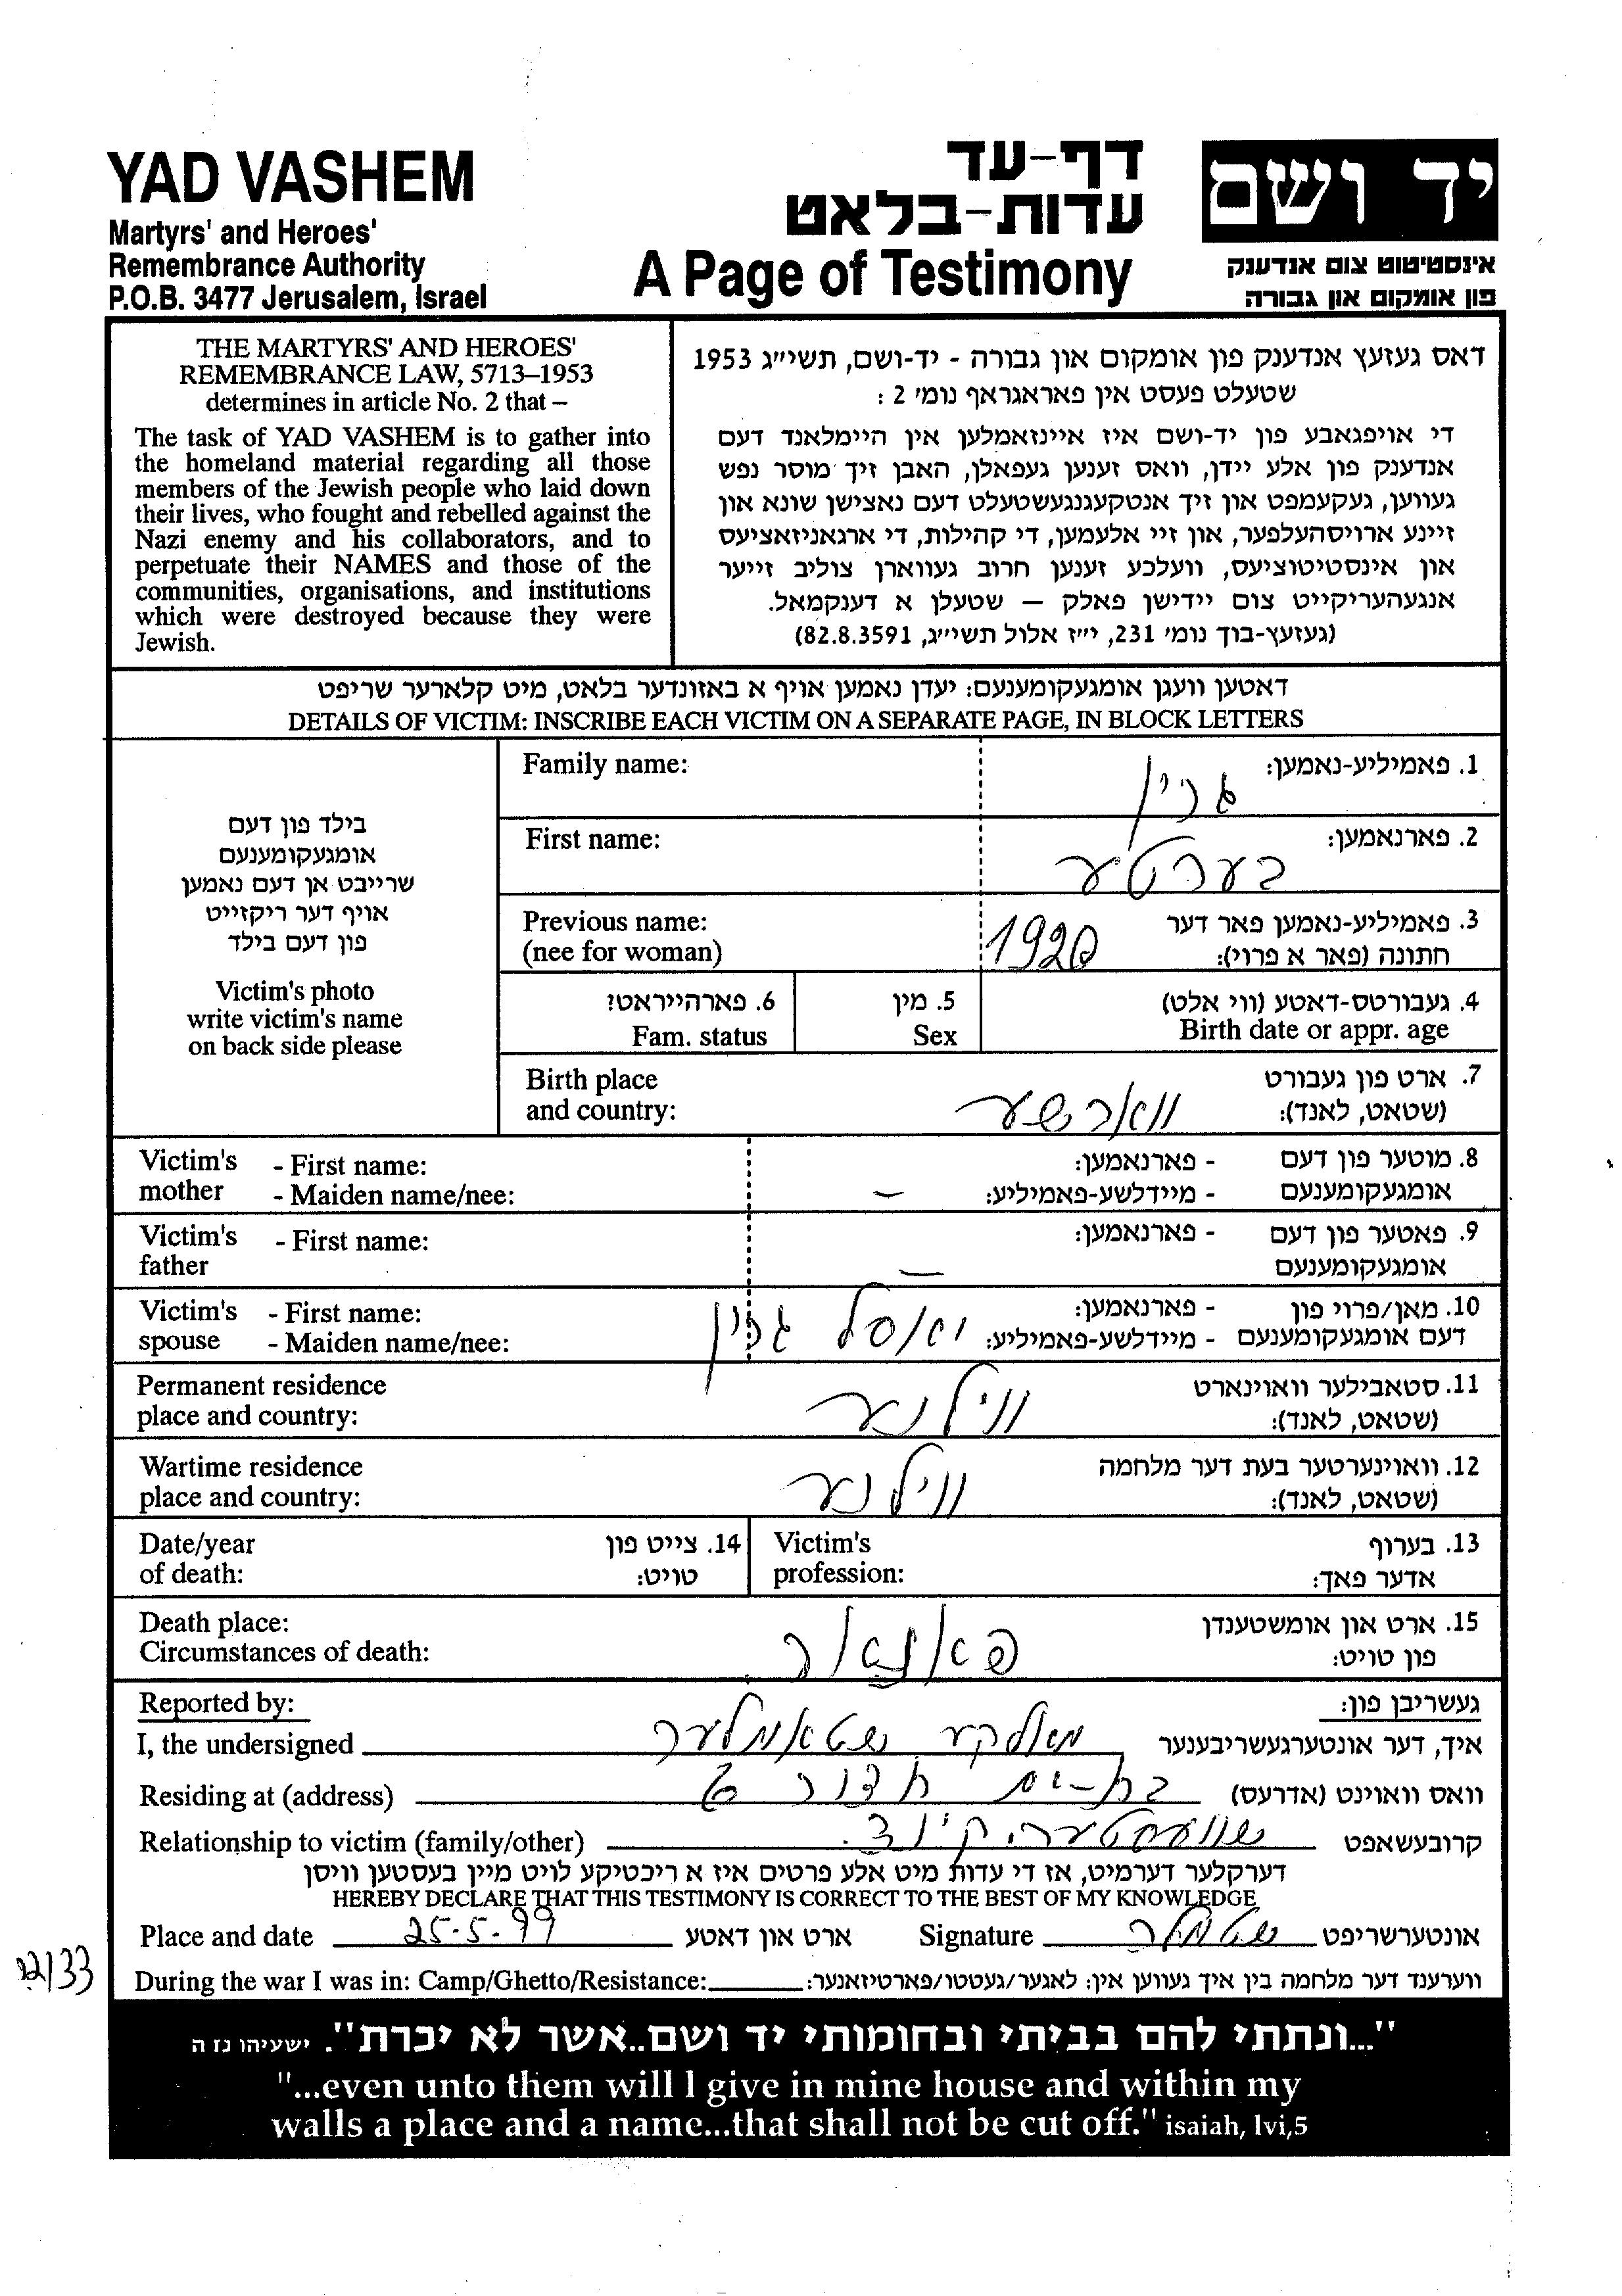 YAD VASHEM
Martyrs' and Heroes'
Remembrance Authority
P.O.B. 3477 Jerusalem, Israel
דף-עד
עדות-בלאט
A Page of Testimony
יד ושם
אינסטיטוט צום אנדענק
פון אומקום און גבורה
THE MARTYRS' AND HEROES'
REMEMBRANCE LAW, 5713–1953
determines in article No. 2 that –
The task of YAD VASHEM is to gather into
the homeland material regarding all those
members of the Jewish people who laid down
their lives, who fought and rebelled against the
Nazi enemy and his collaborators, and to
perpetuate their NAMES and those of the
communities, organisations, and institutions
which were destroyed because they were
Jewish.
דאס געזעץ אנדענק פון אומקום און גבורה - יד-ושם, תשי״ג 1953
שטעלט פעסט אין פאראגראף נומ׳ 2 :
די אויפגאבע פון יד-ושם איז איינזאמלען אין היימלאנד דעם
אנדענק פון אלע יידן, וואס זענען געפאלן, האבן זיך מוסר נפש
געווען, געקעמפט און זיך אנטקעגנגעשטעלט דעם נאצישן שונא און
זיינע ארויסהעלפער, און זיי אלעמען, די קהילות, די ארגאניזאציעס
און אינסטיטוציעס, וועלכע זענען חרוב געווארן צוליב זייער
אנגעהעריקייט צום יידישן פאלק — שטעלן א דענקמאל.
(געזעץ-בוך נומ׳ 231, י״ז אלול תשי״ג, 82.8.3591)
דאטען וועגן אומגעקומענעם: יעדן נאמען אויף א באזונדער בלאט, מיט קלארער שריפט
DETAILS OF VICTIM: INSCRIBE EACH VICTIM ON A SEPARATE PAGE, IN BLOCK LETTERS
בילד פון דעם
אומגעקומענעם
שרייבט אן דעם נאמען
אויף דער ריקזייט
פון דעם בילד
Victim's photo
write victim's name
on back side please
Family name: גרין 1. פאמיליע-נאמען:
First name: בערטע 2. פארנאמען:
Previous name: 1920 3. פאמיליע-נאמען פאר דער
(nee for woman) חתונה (פאר א פרוי):
6. פארהייראט? 5. מין 4. געבורטס-דאטע (ווי אלט)
Fam. status Sex Birth date or appr. age
Birth place 7. ארט פון געבורט
and country: ווארשע (שטאט, לאנד):
Victim's - First name: - פארנאמען: 8. מוטער פון דעם
mother - Maiden name/nee: — - מיידלשע-פאמיליע: אומגעקומענעם
Victim's - First name: - פארנאמען: 9. פאטער פון דעם
father — אומגעקומענעם
Victim's - First name: - פארנאמען: 10. מאן/פרוי פון
spouse - Maiden name/nee: יאסל גרין - מיידלשע-פאמיליע: דעם אומגעקומענעם
Permanent residence 11. סטאבילער וואוינארט
place and country: ווילנע (שטאט, לאנד):
Wartime residence 12. וואוינערטער בעת דער מלחמה
place and country: ווילנע (שטאט, לאנד):
Date/year 14. צייט פון Victim's 13. בערוף
of death: טויט: profession: אדער פאך:
Death place: 15. ארט און אומשטענדן
Circumstances of death: פאנאר פון טויט:
Reported by: געשריבן פון:
I, the undersigned מאלקע שטאמלער איך, דער אונטערגעשריבענער
Residing at (address) בת-ים וואס וואוינט (אדרעס)
Relationship to victim (family/other) שוועסטערקינד. קרובעשאפט
דערקלער דערמיט, אז די עדות מיט אלע פרטים איז א ריכטיקע לויט מיין בעסטען וויסן
HEREBY DECLARE THAT THIS TESTIMONY IS CORRECT TO THE BEST OF MY KNOWLEDGE
Place and date 25-5-99 ארט און דאטע Signature אונטערשריפט
12/33
During the war I was in: Camp/Ghetto/Resistance: ווערענד דער מלחמה בין איך געווען אין: לאגער/געטטו/פארטיזאנער:
"...ונתתי להם בביתי ובחומותי יד ושם..אשר לא יכרת". ישעיהו נז ה
"...even unto them will I give in mine house and within my
walls a place and a name...that shall not be cut off." isaiah, lvi,5